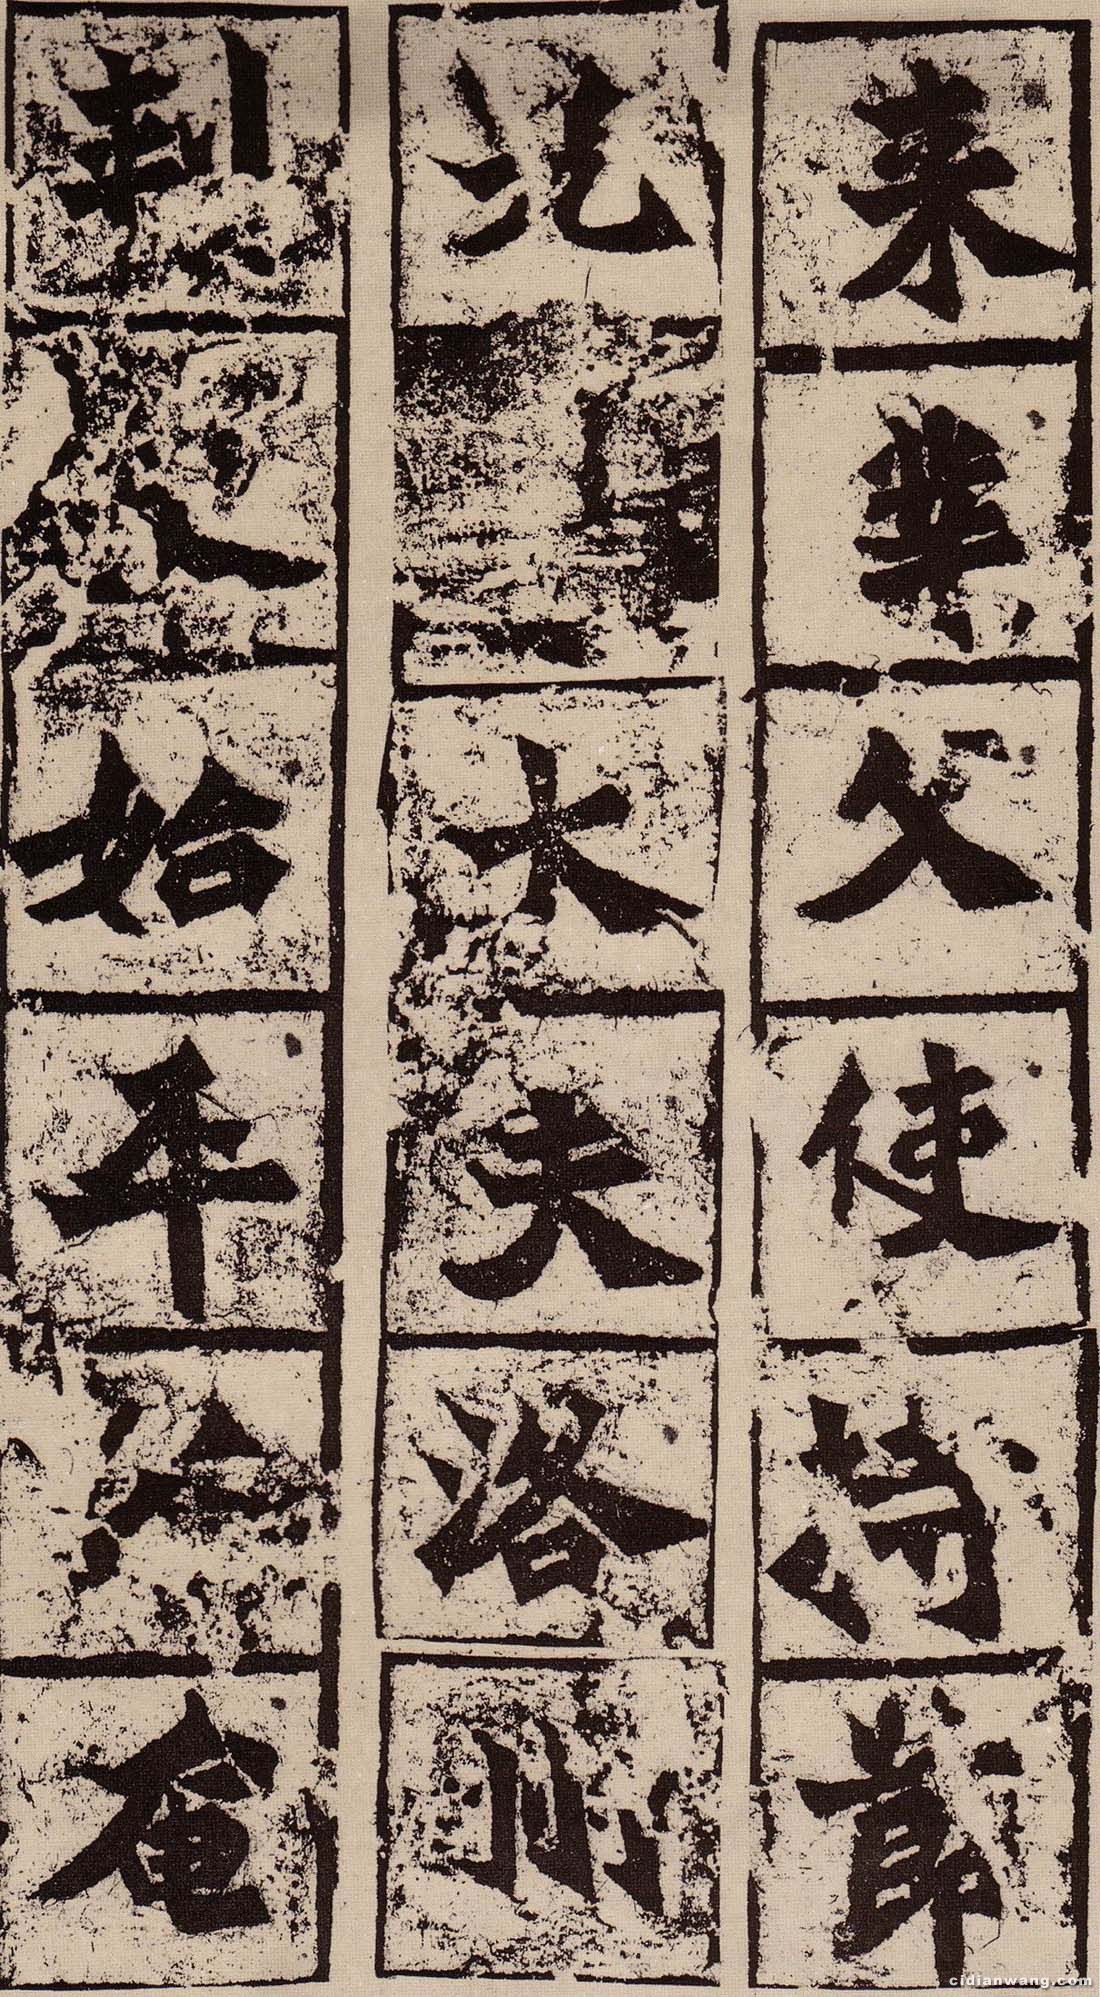 来業父使持節
光大夫洛州
刺史始平公奄